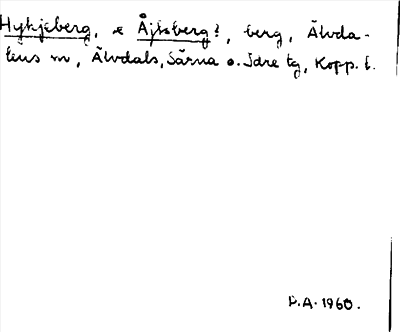 Hykjeberg, e Åjksberg?, berg, Älvda-
lens sn, Älvdals, Särna o. Idre tg, Kopp. l.
D.A. 1960.